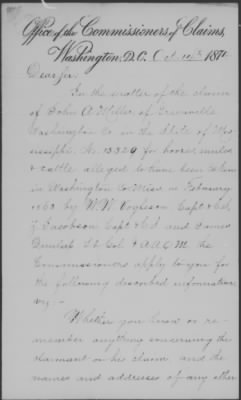 Office of the Commissioners of Claims,
Washington, D.C. Oct. 187
Dear Sir,
In the matter of the claim
of John A. Miller, of Greenville
Washington Co in the State of Mis-
sissippi, No. 13329 for horses, mules
& cattle alleged to have been taken
in Washington Co Miss in February
1863 by W. W. Capt &
Jacobson Capt & and James
Lt Col & A.A.C.M. the
Commissioners apply to you for
the following described information
viz: -
Whether you know or re-
member anything concerning the
claimant or his claim, and the
names and addresses of any other